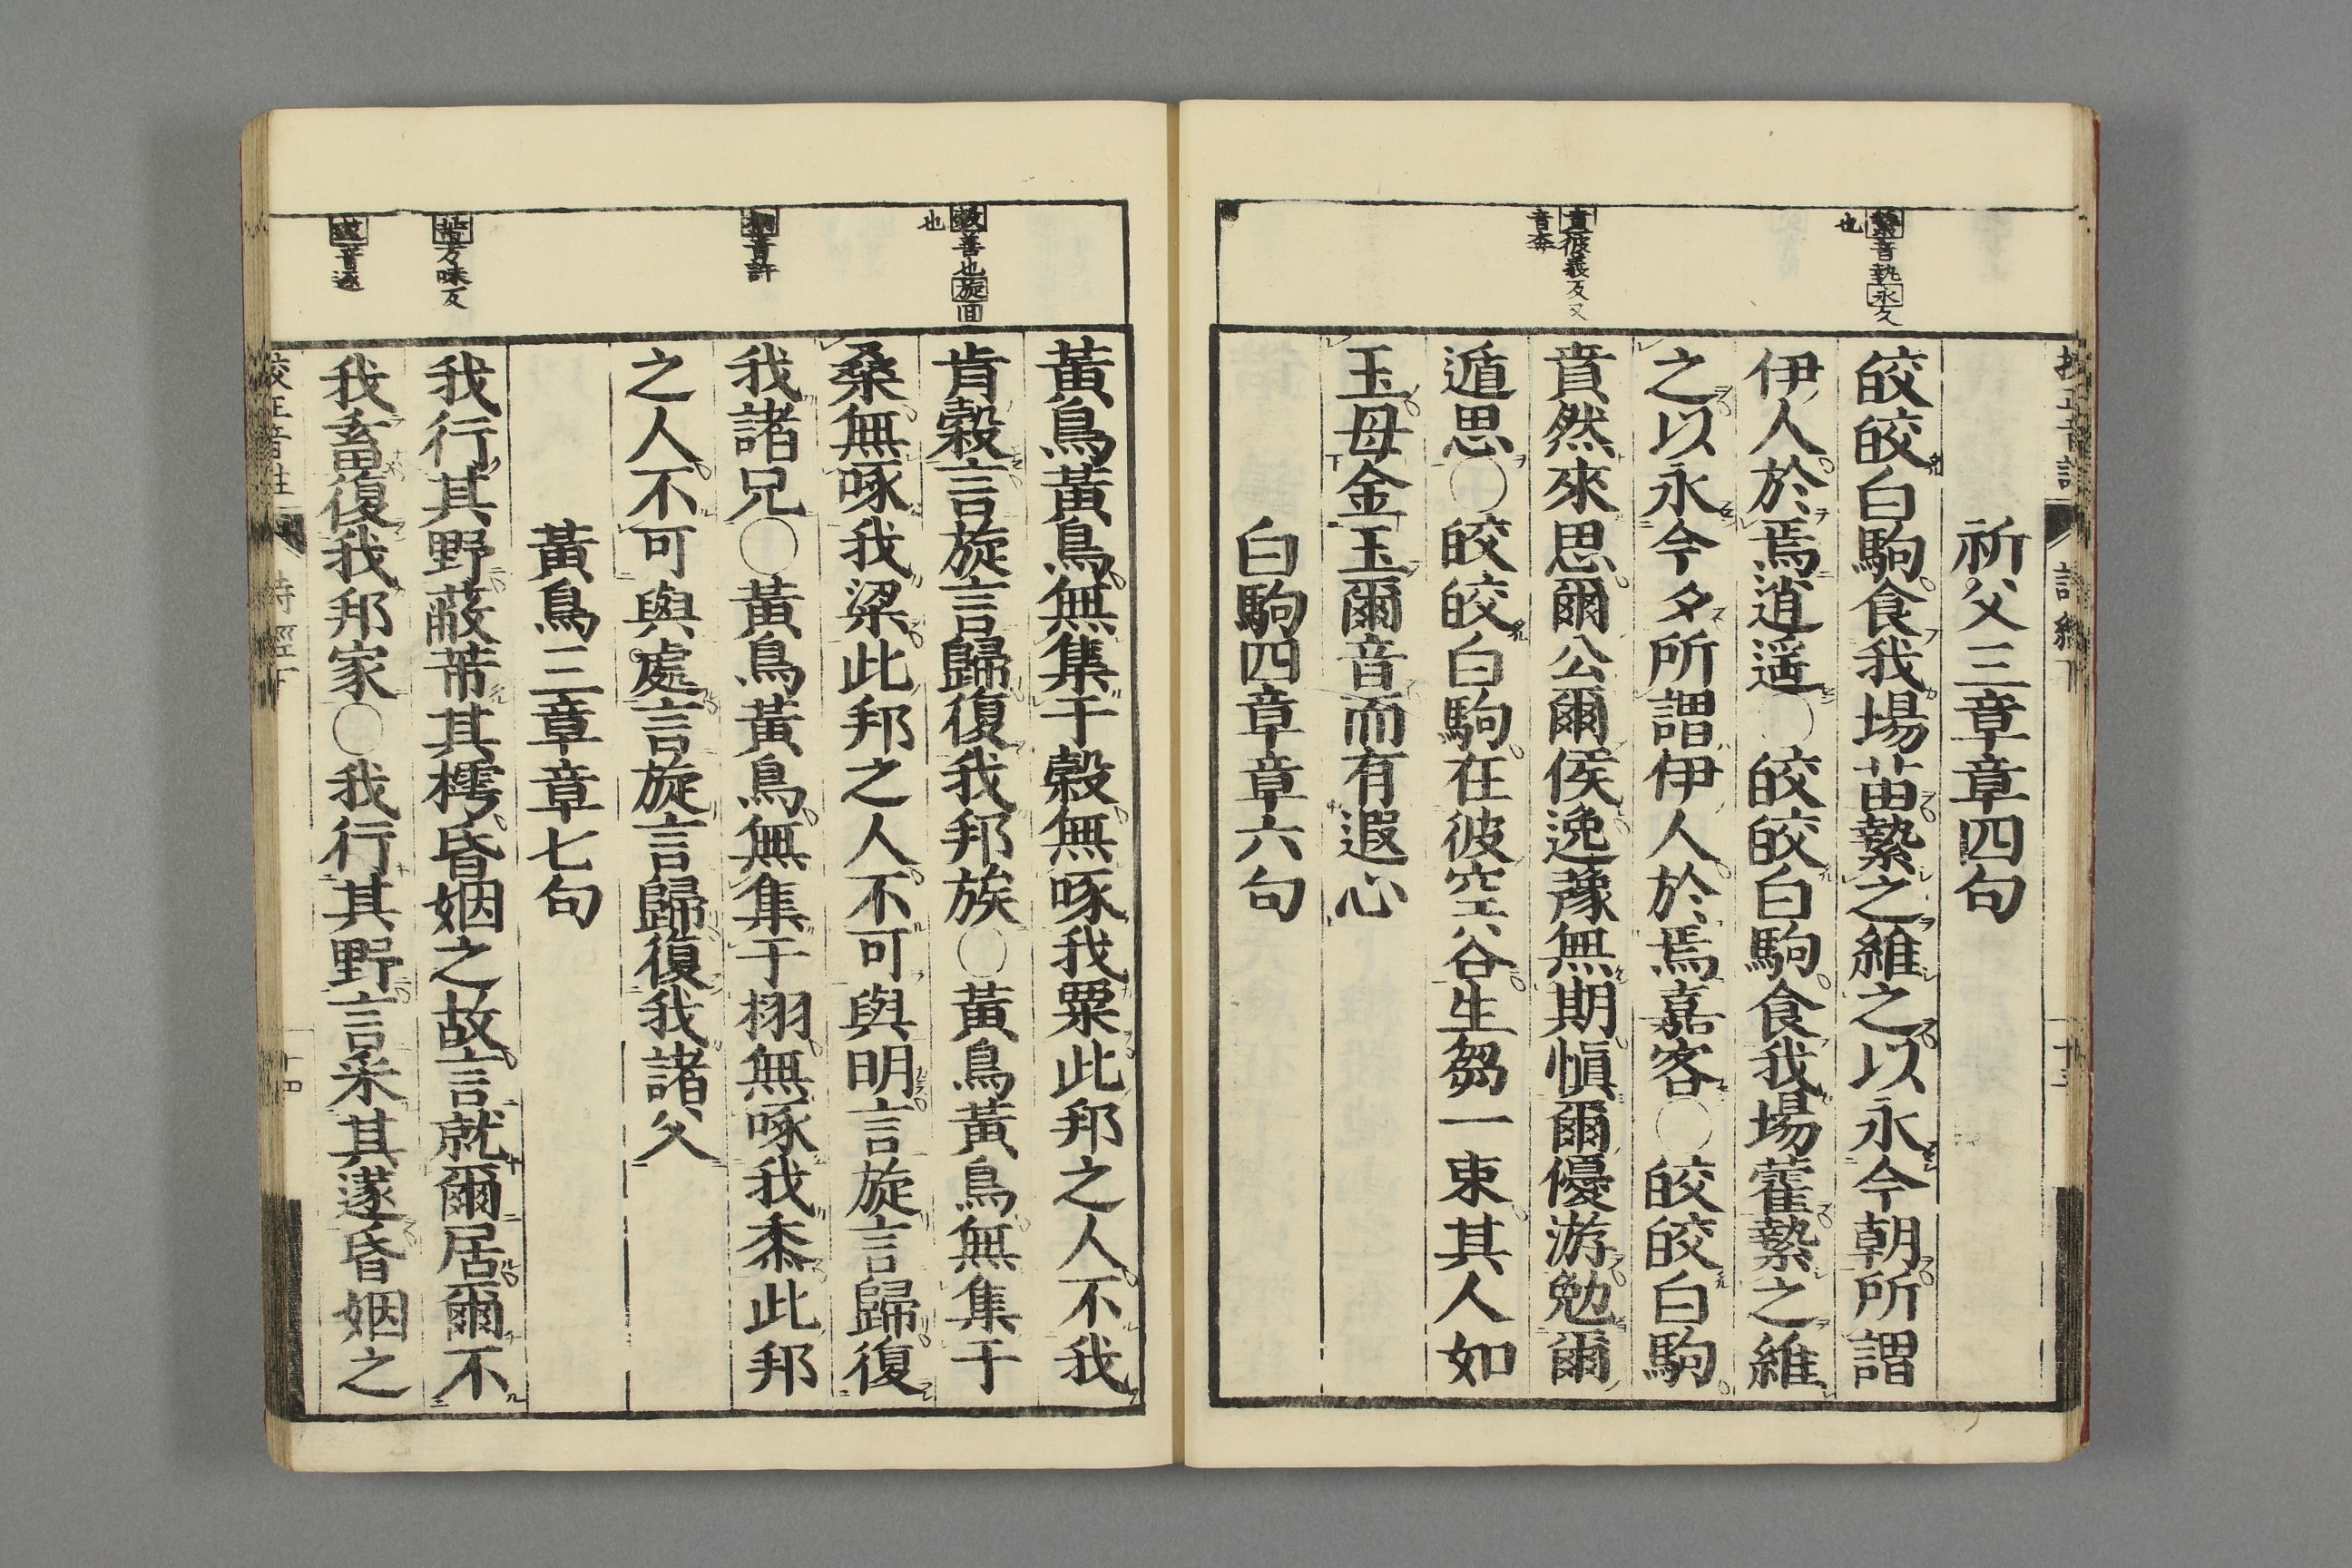 祈父三章章四句
皎皎白駒食我場苗縶之維之以永今朝所謂
伊人於焉逍遥○皎皎白駒食我場藿縶之維
之以永今夕所謂伊人於焉嘉客○皎皎白駒
賁然來思爾公爾侯逸豫無期愼爾優游勉爾
遁思○皎皎白駒在彼空谷生芻一束其人如
玉母金玉爾音而有遐心
白駒四章章六句
縶音執永久
也
賁彼義反又
音奔
黃鳥黃鳥無集于榖無啄我粟此邦之人不我
肯穀言旋言歸復我邦族○黃鳥黃鳥無集于
桑無啄我梁此邦之人不可與明言旋言歸復
我諸兄○黃鳥黃鳥無集于栩無啄我黍此邦
之人不可與處言旋言歸復我諸父
黃鳥三章章七句
我行其野蔽芾其樗昏姻之故言就爾居爾不
我畜復我邦家○我行其野言采其蓫昏姻之
穀善也旋回
也
栩音許
芾方味反
蓫音逐
校正音註 詩經下 十四